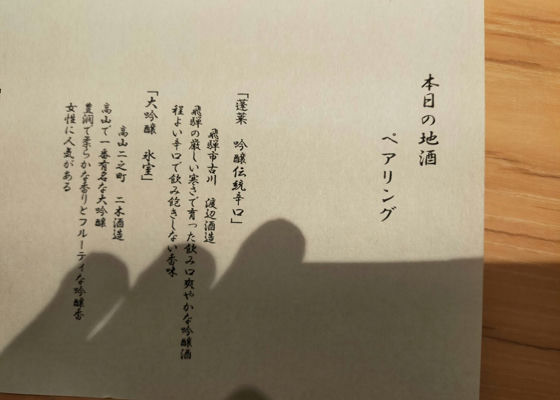 本日の地酒
ペアリング
「蓬莱 吟醸伝統辛口」
飛騨市古川 渡辺酒造
飛騨の厳しい寒さで育った飲み口爽やかな吟醸酒
程よい辛口で飲み飽きしない香味
「大吟醸 氷室」
高山二之町 二木酒造
高山で一番有名な大吟醸
豊潤で柔らかな香りとフルーティな吟醸香
女性に人気がある